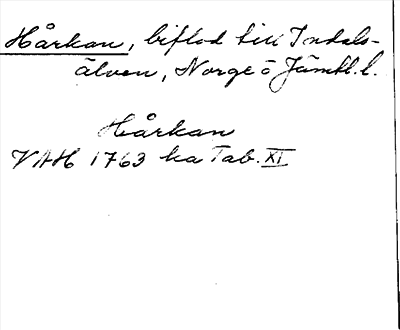 Hårkan, biflod till Indals-
älven, Norge o Jämtl. l.
Hårkan
VAH 1763 ka Tab. XI